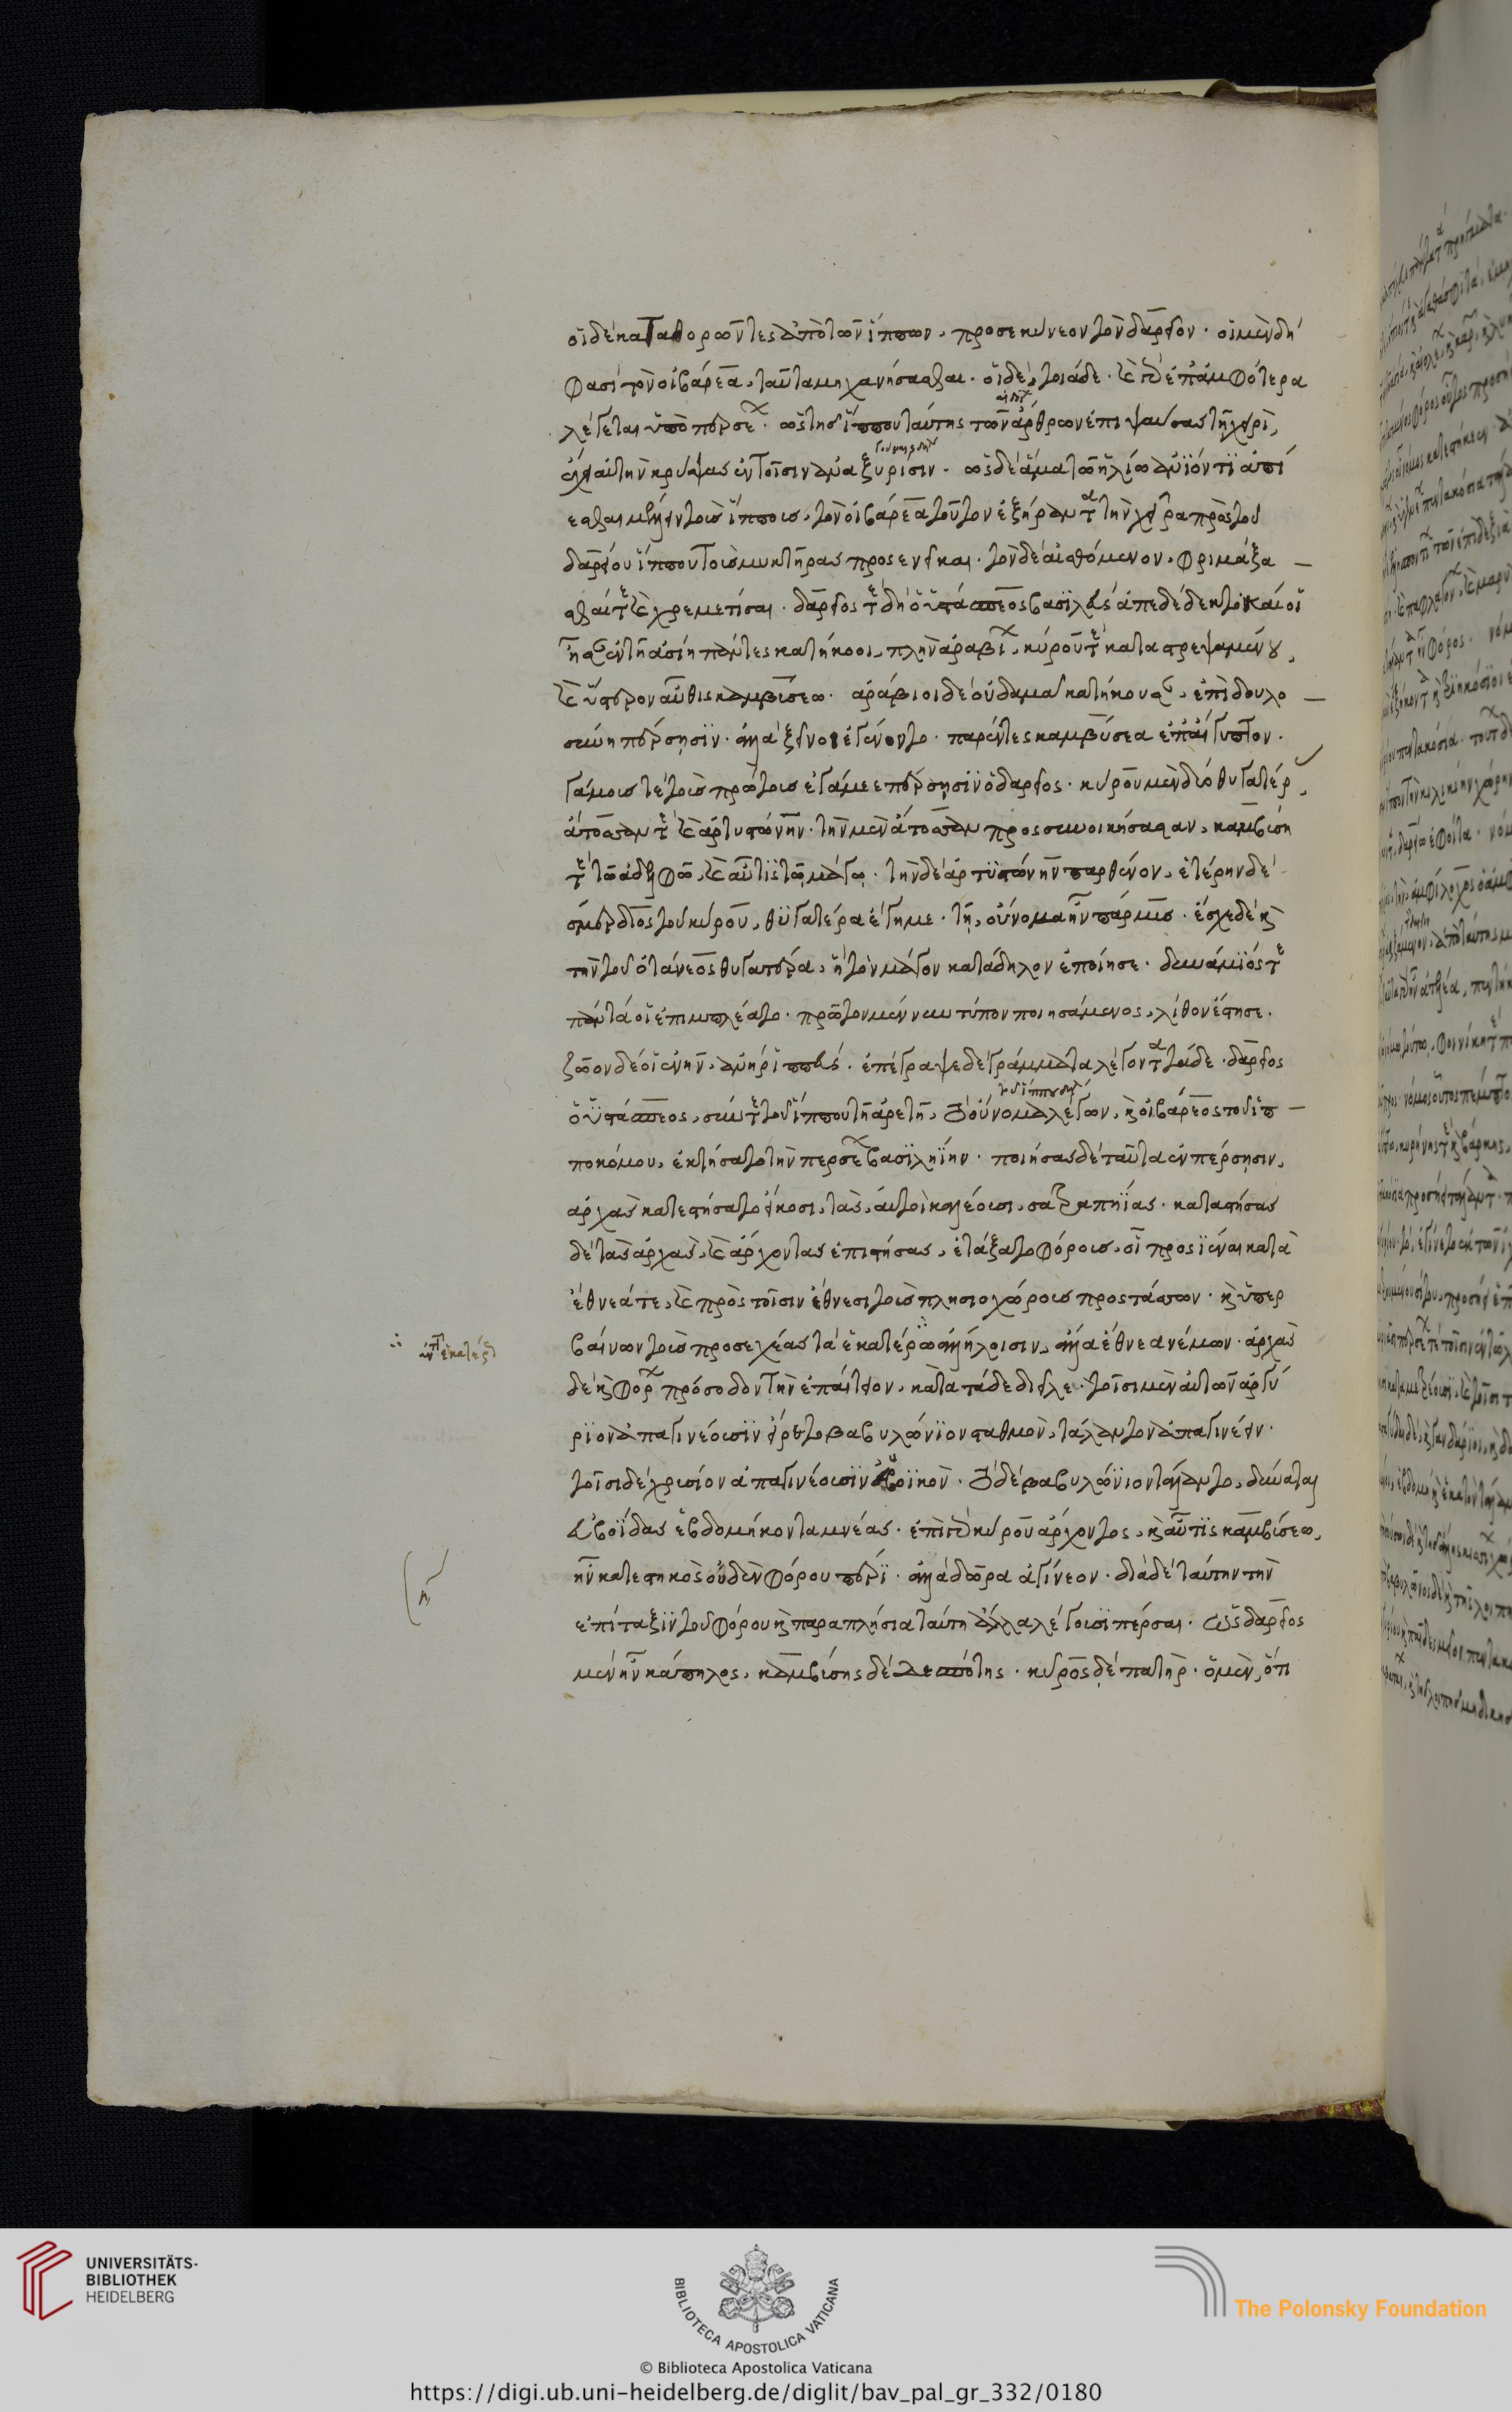 οἱ δὲ καταθορῶντες ἀπὸ τῶν ἵππων, προσεκύνεον τὸν δαρεῖον. οἱ μὲν δή
φασί τὸν οἰβάρεα, ταῦτα μηχανήσασθαι. οἱ δὲ, τοιάδε. καὶ γὰρ ἐπ' ἀμφότερα
λέγεται ὑπὸ περσέων. ὡς τῆς ἵππου ταύτης τῶν ἄρθρων ἐπιψαύσας τῆ χειρὶ,
ἔχει αὐτὴν κρύψας ἐν τοῖσιν ἀναξυρίσιν. ὡς δὲ ἅμα τῶ ἡλίω ἀνϊόντϊ ἀπί
εσθαι μέλλειν τοὺς ἵππους, τὸν οἰβάρεα τοῦτον ἐξείραντα τὴν χεῖρα πρὸς τοῦ
δαρείου ἵππου τοὺς μυκτῆρας προσενεῖκαι. τὸν δὲ αἰσθόμενον, φριμάξα
σθαί τε καὶ χρεμετίσαι. δαρεῖός τε δὴ ὁ ὑστάσπεος βασϊλεὺς ἀπεδέδεκτο καί οἱ
ἦσαν ἐν τῆ ἀσίη πάντες κατήκοοι, πλὴν ἀραβίων, κύρου τε καταστρεψαμένου,
καὶ ὕστερον αὖθις καμβύσεω. ἀράβιοι δὲ οὐδαμᾶ κατήκουσαν, ἐπὶ δουλο
σύνη πέρσησϊν. ἀλλὰ ξεῖνοι ἐγένοντο. παρέντες καμβύσεα ἐπ' αἴγυπτον.
γάμους τε τοὺς πρώτους ἐγάμεε πέρσησϊν ὁ δαρεῖος. κύρου μὲν δύο θυγατέρας,
ἄτοσσάν τε καὶ ἀρτυστώνην. τὴν μὲν ἄτοσσαν προσυνοικήσασαν, καμβύση
τε τῶ ἀδελφῶ, καὶ αὖτις τῶ μάγω. τὴν δὲ ἀρτϋστώνην παρθένον, ἑτέρην δὲ
σμέρδιος τοῦ κύρου, θϋγατέρα ἔγημε. τῆ, οὔνομα ἦν πάρμυς. ἔσχε δὲ καὶ
τὴν τοῦ ὀτάνεος θυγατέρα, ἣ τὸν μάγον κατάδηλον ἐποίησε. δυνάμϊός τε
πάντά οἱ ἐπιμπλέατο. πρῶτον μέν νυν τύπον ποιησάμενος, λίθον ἔστησε.
ζῶον δέ οἱ ἐνῆν, ἀνὴρ ἱππεύς. ἐπέγραψε δὲ γράμματα λέγοντα τάδε. δαρεῖος
ὁ ὑστάσπεος, σύν τε τοῦ ἵππου τῆ ἀρετῆ, τὸ οὔνομα λέγων, καὶ οἰβάρεος τοῦ ἱπ
ποκόμου, ἐκτήσατο τὴν περσέων βασϊληΐην. ποιήσας δὲ ταῦτα ἐν πέρσησιν,
ἀρχὰς κατεστήσατο εἴκοσι, τὰς, αὐτοὶ καλέουσι, σατραπηΐας. καταστήσας
δὲ τὰς ἀρχὰς, καὶ ἄρχοντας ἐπιστήσας, ἐτάξατο φόρους, οἱ προσϊέναι κατὰ
ἔθνεά τε, καὶ πρὸς τοῖσιν ἔθνεσι τοὺς πλησιοχώρους προστάσσων. καὶ ὑπερ
βαίνων τοὺς προσεχέας τὰ ἑκατέρω ἀλλήλοισιν, ἄλλα ἔθνεα νέμων. ἀρχὰς
δὲ καὶ φόρων πρόσοδον τὴν ἐπέτειον, κατὰ τάδε διεῖλε. τοῖσι μὲν αὐτῶν ἀργύ
ρϊον ἀπαγινέουσϊν εἴρητο βαβυλώνϊον σταθμὸν, τάλαντον ἀπαγινέειν.
τοῖσι δὲ χρυσίον ἀπαγινέουσϊν εὐβοϊκὸν. τὸ δὲ βαβυλώνιον τάλαντο, δύναται
εὐβοΐδας ἑβδομήκοντα μνέας. ἐπὶ γὰρ κύρου ἄρχοντος, καὶ αὖτϊς καμβύσεω,
ἦν κατεστηκὸς οὐδὲν φόρου πέρϊ. ἀλλὰ δῶρα ἀγίνεον. διὰ δὲ ταύτην τὴν
ἐπίταξϊν τοῦ φόρου καὶ παραπλήσια ταύτη ἄλλα λέγουσϊ πέρσαι. ὡς δαρεῖος
μὲν ἦν κάπηλος, καμβύσης δὲ δεσπότης. κῦρος δὲ πατὴρ. ὁ μὲν, ὅτι
UNIVERSITÄTS-
BIBLIOTHEK
HEIDELBERG
BIBLIOTECA APOSTOLICA VATICANA
The Polonsky Foundation
© Biblioteca Apostolica Vaticana
https://digi.ub.uni-heidelberg.de/diglit/bav_pal_gr_332/0180